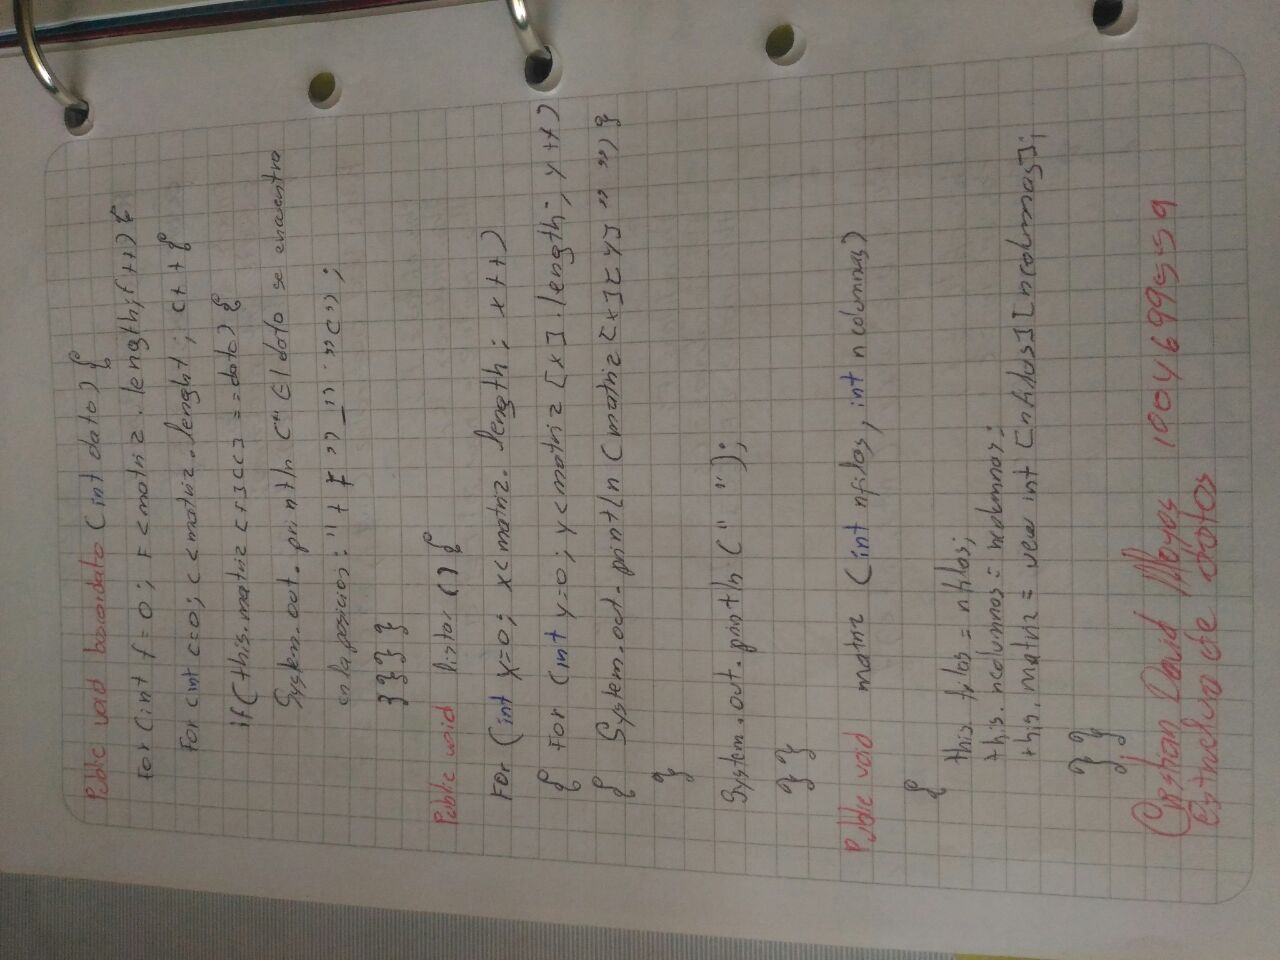 Public void buscardato (int dato) {
For (int f = 0; F < matriz. length; f++) {
For cint c=0; c < matriz. lenght; c++ {
if (this.matriz c F ] c c ] == dato) {
System.out. println (" El dato se encuentra
en la posicion: " + F "_" "c");
} } } }
Public void listar () {
For (int x=0; x< matriz. length; x++)
{ For (int y=0; y < matriz [x]. length; y++)
{ System.out. println (matriz [x] [y] " ") {
}
System.out. println (" ");
} }
Public void matriz (int nfilas, int ncolumnas)
{
this. filas = nfilas;
this. ncolumnas = ncolumnas;
this. matriz = new int [nfilas] [ncolumnas];
} }
Cristian David Hoyos 1004699559
Estructura de datos